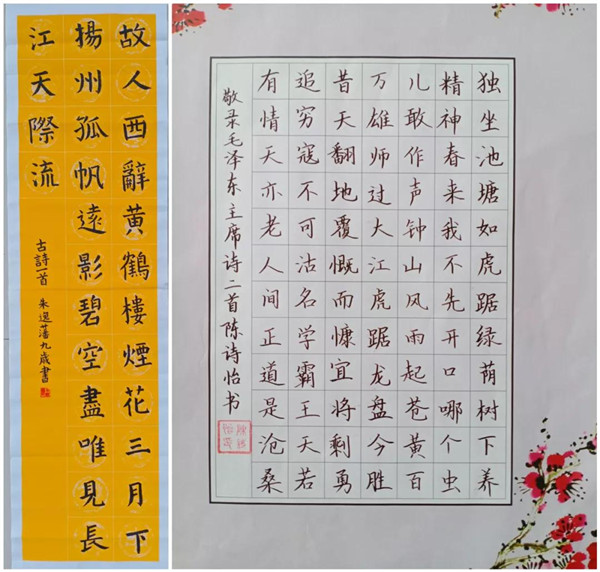 故人西辭黄鶴樓煙花三月下
揚州孤帆遠影碧空盡唯見長
江天際流
古詩一首
朱逸藩九歲書
独坐池塘如虎踞绿荫树下养
精神春来我不先开口哪个虫
儿敢作声钟山风雨起苍黄百
万雄师过大江虎踞龙盘今胜
昔天翻地覆慨而慷宜将剩勇
追穷寇不可沽名学霸王天若
有情天亦老人间正道是沧桑
敬录毛泽东主席诗二首陈诗怡书